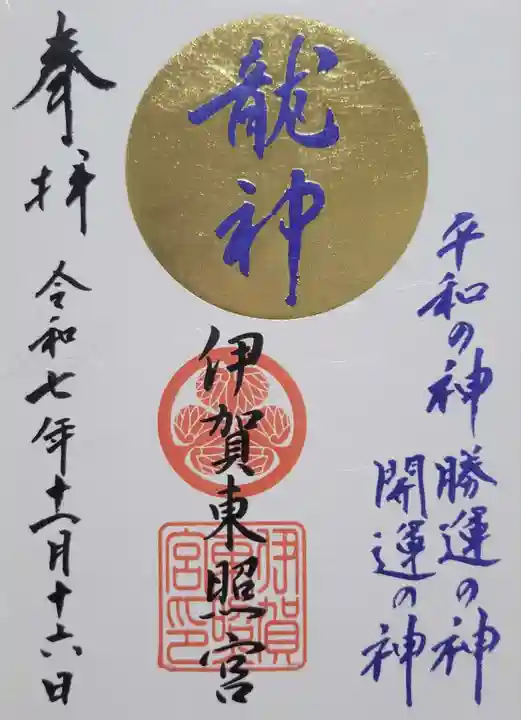 平和の神
勝運の神
開運の神
龍神
伊賀東照宮
伊賀
東照
宮印
奉拝
令和七年十一月十六日